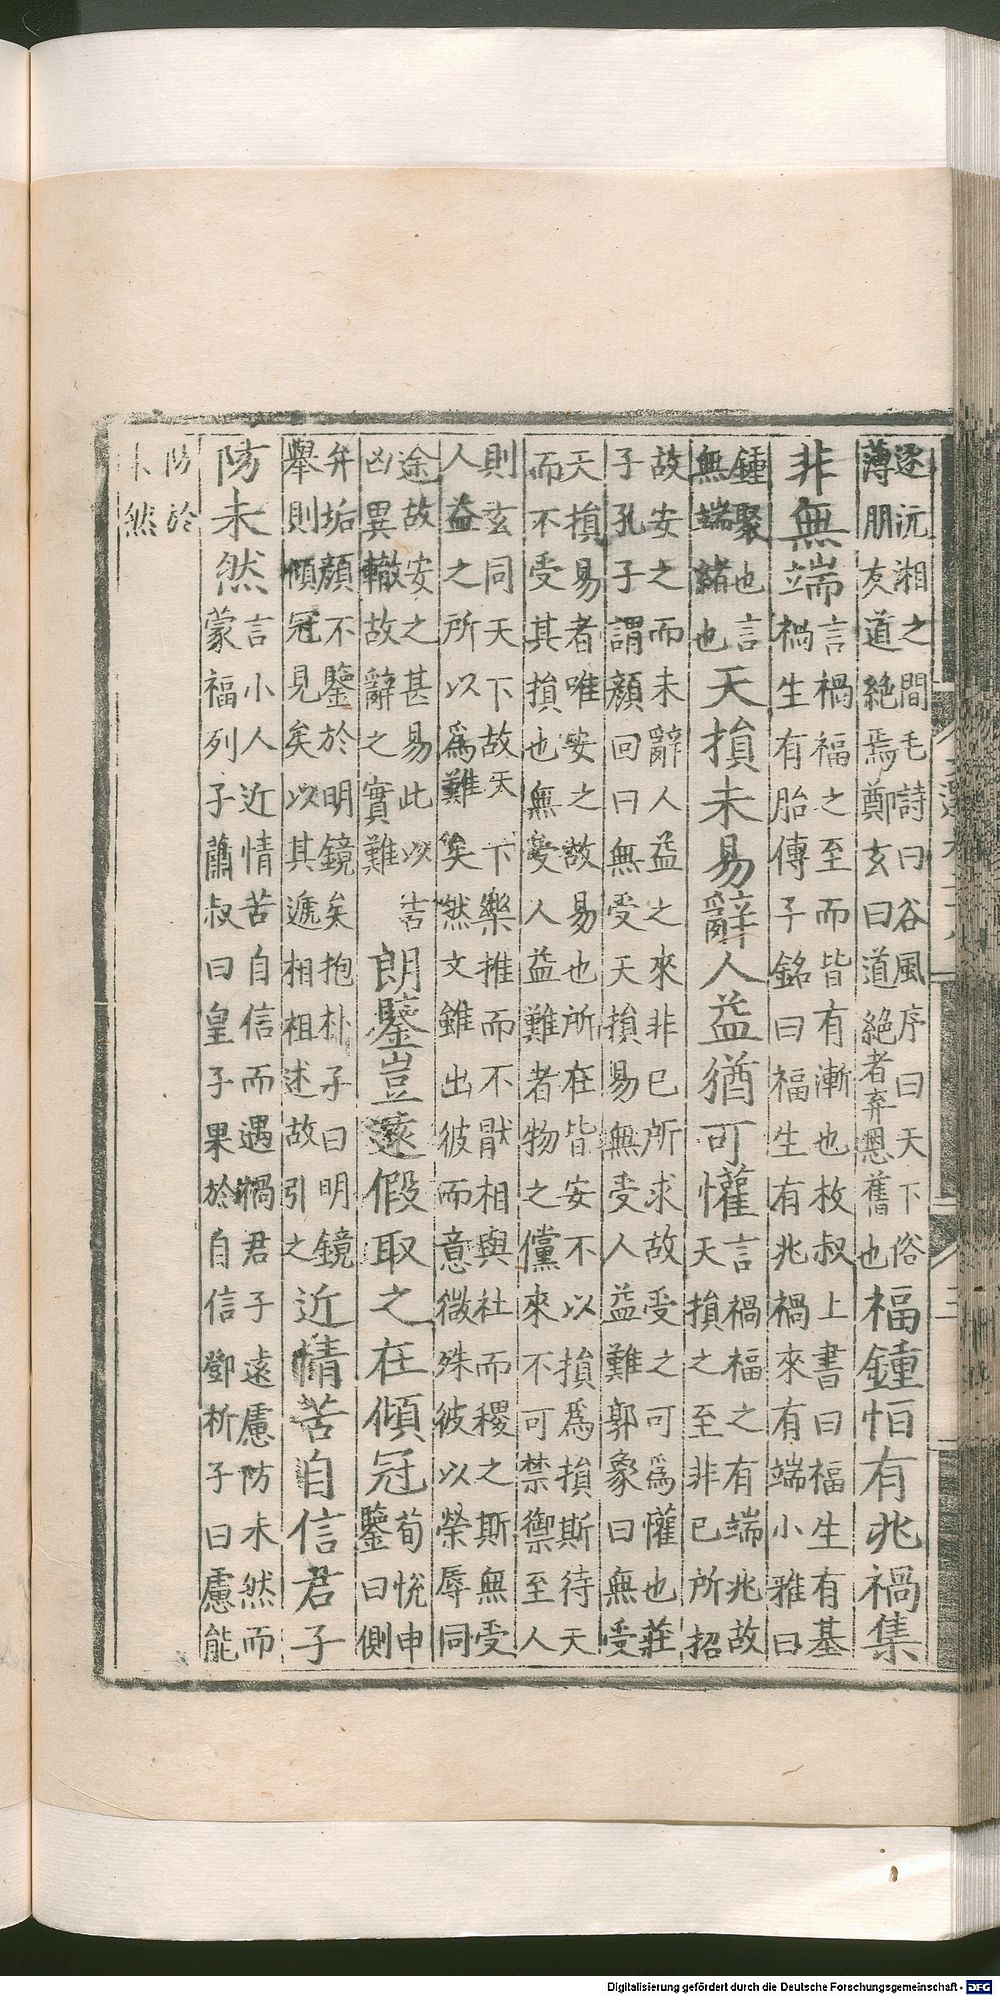 逐沅湘之間毛詩曰谷風序曰天下俗
薄朋友道絕焉鄭玄曰道絕者弃恩舊也
福鍾恒有兆禍集
非無端
言禍福之至而皆有漸也枚叔上書曰福生有基
禍生有胎傅子銘曰福生有兆禍來有端小雅曰
鍾聚也言
無端緒也
天損未易辭人益猶可懽
言禍福之有端兆故
天損之至非己所招
故安之而未辭人益之來非己所求故受之可爲懽也莊
子孔子謂顏回曰無受天損易無受人益難郭象曰無受
天損易者唯安之故易也所在皆安不以損爲損斯待天
而不受其損也無受人益難者物之儻來不可禁禦至人
則玄同天下故天下樂推而不猒相與社而稷之斯無受
人益之所以爲難矣然文雖出彼而意微殊彼以榮辱同
途故安之甚易此以吉
凶異轍故辭之實難
朗鑒豈遠假取之在傾冠
荀悅申
鑒曰側
弁垢顏不鑒於明鏡矣抱朴子曰明鏡
舉則傾冠見矣以其遞相祖述故引之
近情苦自信君子
防未然
言小人近情苦自信而遇禍君子遠慮防未然而
蒙福列子蕭叔曰皇子果於自信鄧析子曰慮能
防於
未然
Digitalisierung gefördert durch die Deutsche Forschungsgemeinschaft - DFG